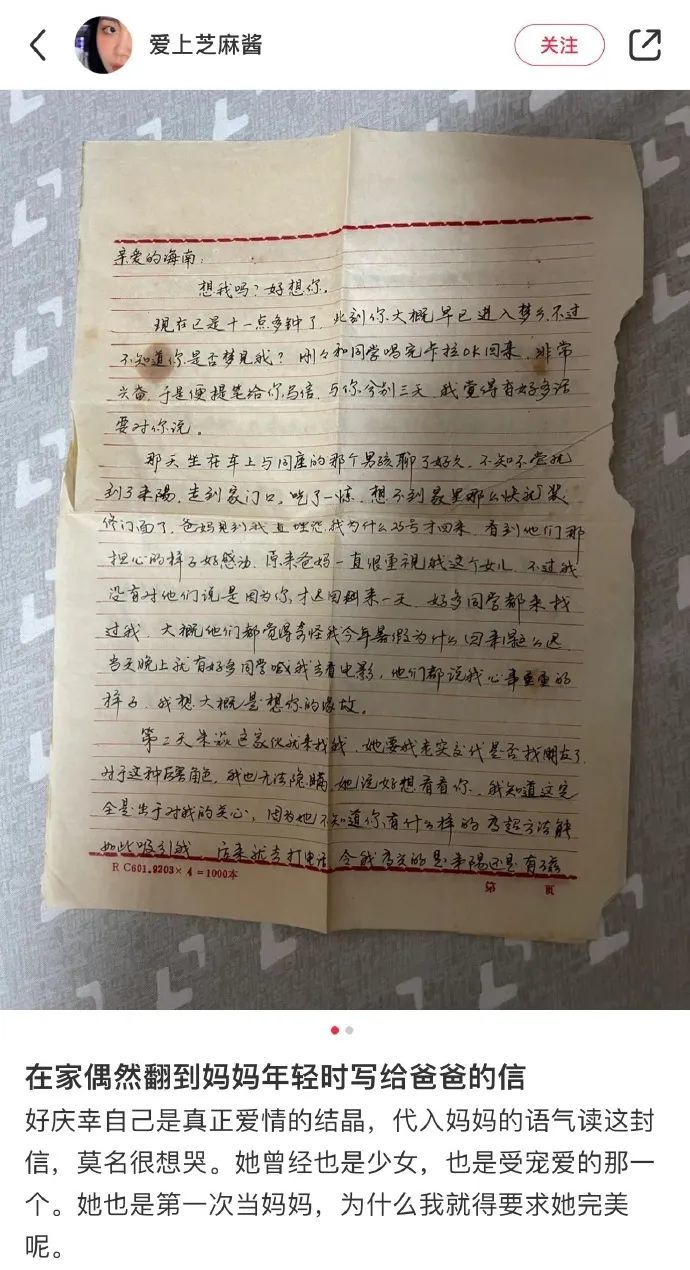 爱上芝麻酱
关注
亲爱的海南:
想我吗?好想你。
现在已是十一点多钟了,此刻你大概早已进入梦乡,不过
不知道你是否梦见我?刚刚和同学唱完卡拉OK回来,非常
兴奋,于是便提笔给你写信,与你分别三天,我觉得有好多话
要对你说。
那天坐在车上与同座的那个男孩聊了好久,不知不觉就
到了耒阳,走到家门口,吃了一惊,想不到家里那么快就装
修门面了,爸妈见到我直埋怨我为什么25号才回来,看到他们那
担心的样子好感动,原来爸妈一直很重视我这个女儿,不过我
没有对他们说是因为你才迟回来一天,好多同学都来找
过我,大概他们都觉得奇怪我今年暑假为什么回来得这么迟,
当天晚上就有好多同学喊我去看电影,他们都说我心事重重的
样子,我想大概是想你的缘故。
第二天朱 这家伙就来找我,她要我老实交代是否找朋友了,
对于这种厉害角色,我也无法隐瞒,她说好想看看你,我知道这完
全是出于对我的关心,因为她不知道你有什么样的高超方法能
如此吸引我,后来就去打电话,令我高兴的是耒阳还是有磁
R C601.9203×4=1000本
第 页
在家偶然翻到妈妈年轻时写给爸爸的信
好庆幸自己是真正爱情的结晶,代入妈妈的语气读这封
信,莫名很想哭。她曾经也是少女,也是受宠爱的那一
个。她也是第一次当妈妈,为什么我就得要求她完美
呢。